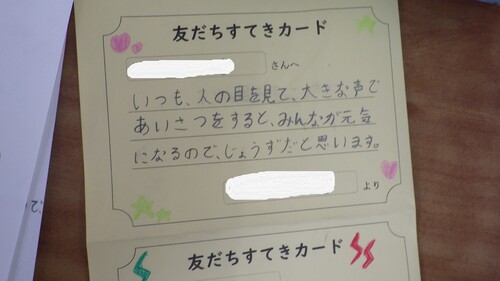 友だちすてきカード
さんへ
いつも、人の目を見て、大きな声で
あいさつをすると、みんなが元気
になるので、じょうずだと思います。
より
友だちすてきカード